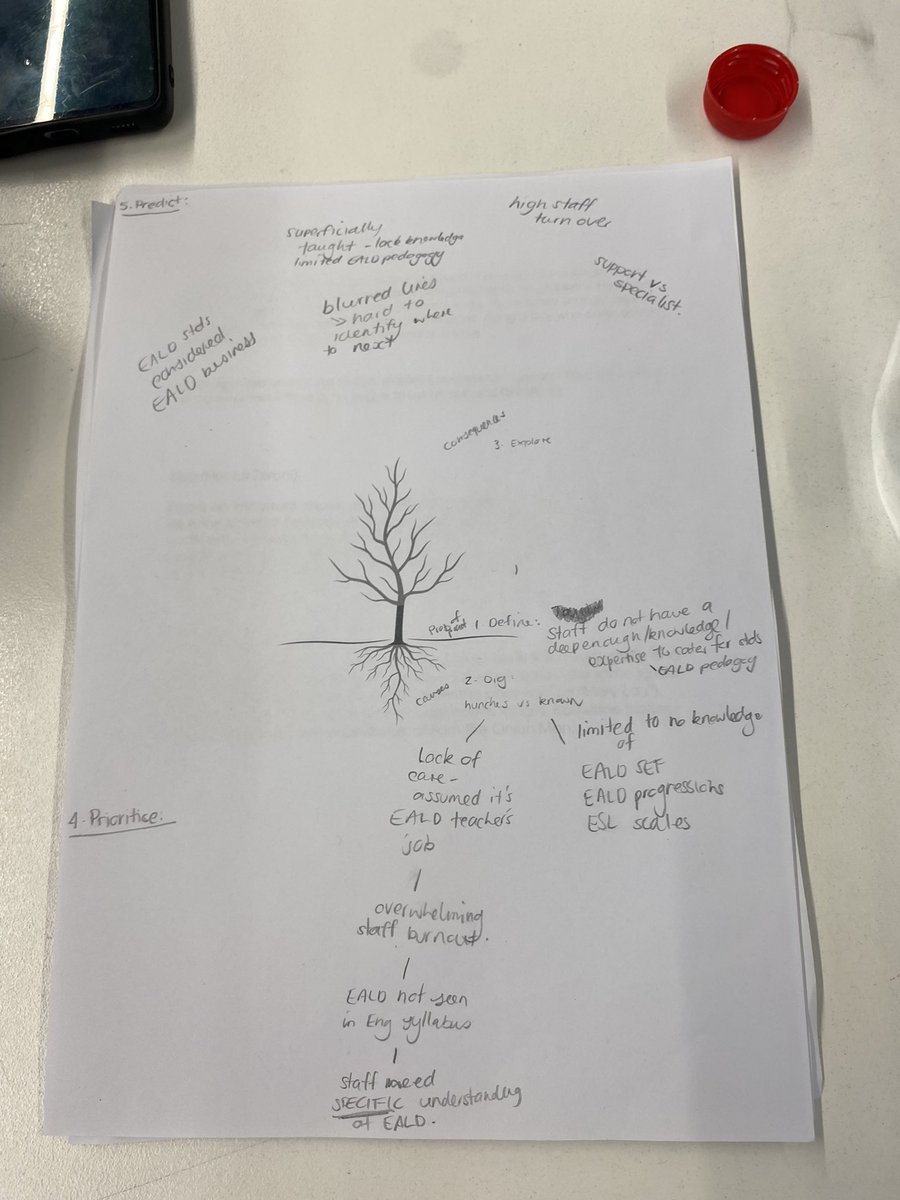 5. Predict:
high staff
turn over
superficially
taught - lack knowledge
limited EALD pedagogy
support vs
specialist.
blurred lines
> hard to
identify where
to next
EALD stds
considered
EALD business
consequences
3. Explore
1 Define:
staff do not have a
deep enough/knowledge/
expertise to cater for stds
EALD pedagogy
causes
2. Dig:
hunches vs known
limited to no knowledge
of
EALD SEF
EALD progressions
ESL scales
Lack of
care -
assumed it's
EALD teacher's
job
4. Prioritise:
overwhelming
staff burnout.
EALD not seen
in Eng syllabus
staff need
SPECIFIC understanding
of EALD.